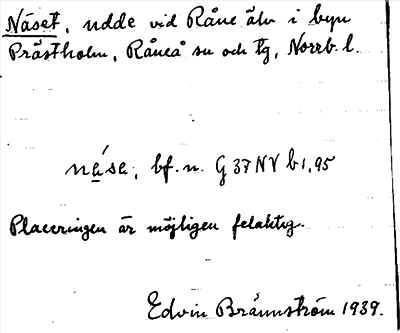 Näset, udde vid Råne älv i byn
Prästholm, Råneå sn och tg, Norrb. l.
nä́se, bf. n. G 37 NV b 1, 95
Placeringen är möjligen felaktig.
Edvin Brännström 1939.